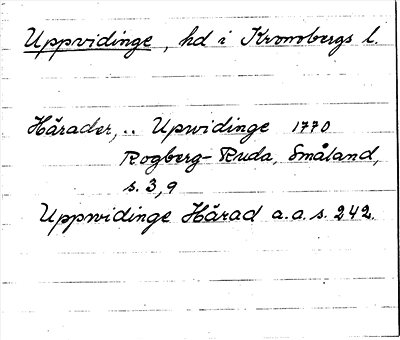 Uppvidinge, hd i Kronobergs l.
Härader, .. Upvidinge 1770
Rogberg-Ruda, Småland,
s. 3, 9
Uppvidinge Härad a.a.s. 242.